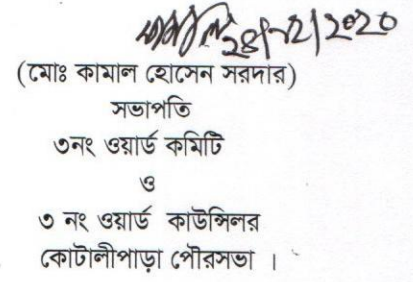 28/12/2020
(মোঃ কামাল হোসেন সরদার)
সভাপতি
৩নং ওয়ার্ড কমিটি
ও
৩ নং ওয়ার্ড কাউন্সিলর
কোটালীপাড়া পৌরসভা ।